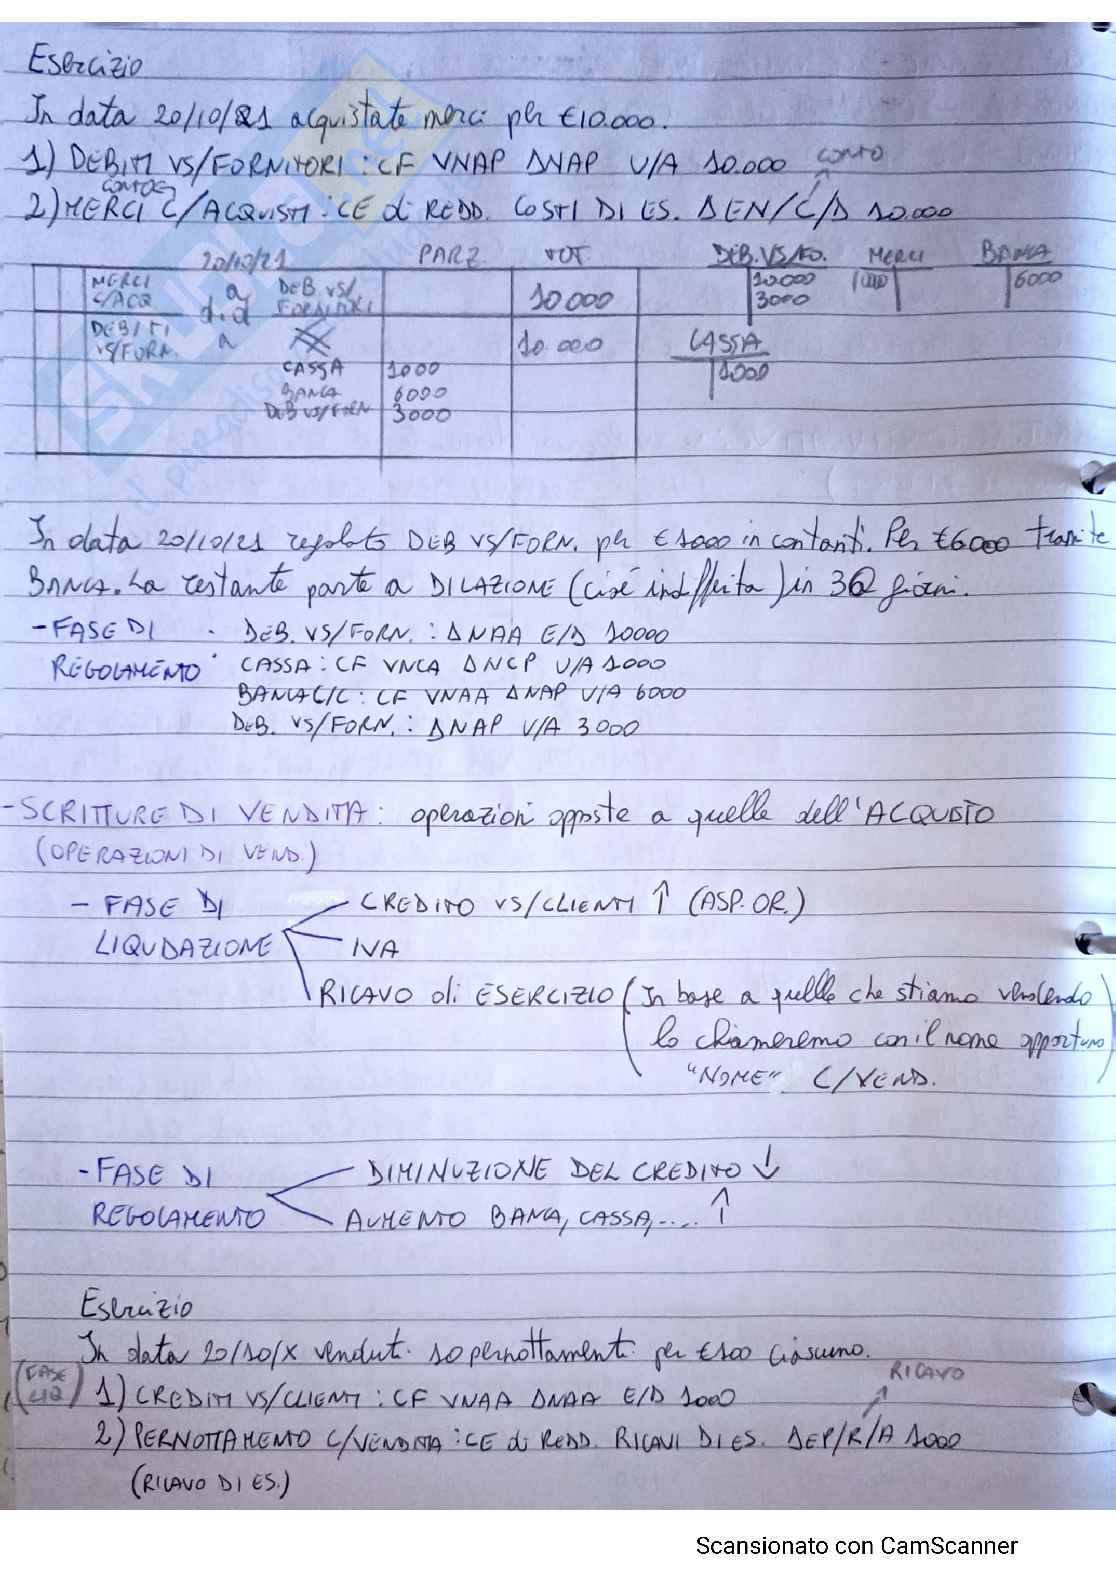 Esercizio
In data 20/10/21 acquistate merci per €10.000.
1) DEBITI VS/FORNITORI : CF VNAP ΔNAP U/A 10.000 CONTO
2) MERCI C/ACQUISTI : CE di REDD. COSTI DI ES. ΔEN/C/D 10.000
20/10/21 PARZ. TOT. DEB. VS/FO. MERCI BANCA
MERCI C/ACQ a DEB. VS/ FORNITORI 10000 10.000 3000 6000
d.d
DEBITI VS/FORN. a 10.000 CASSA
CASSA 1000 1000
BANCA 6000
DEB VS/FORN 3000
In data 20/10/21 regolato DEB VS/FORN. per €1000 in contanti. Per €6000 tramite
BANCA. La restante parte a DILAZIONE (cioè indifferita) in 30 giorni.
- FASE DI . DEB. VS/FORN. : ΔNAA E/D 10000
REGOLAMENTO CASSA : CF VNCA ΔNCP U/A 1000
BANCA C/C : CF VNAA ΔNAP U/A 6000
DEB. VS/FORN. : ΔNAP U/A 3000
- SCRITTURE DI VENDITA : operazioni opposte a quelle dell'ACQUSTO
(OPERAZIONI DI VEND.)
- FASE DI CREDITO VS/CLIENTI ↑ (ASP. OR.)
LIQUDAZIONE IVA
RICAVO di ESERCIZIO (In base a quello che stiamo vendendo
lo chiameremo con il nome opportuno
"NOME" C/VEND.
- FASE DI DIMINUZIONE DEL CREDITO ↓
REGOLAMENTO AUMENTO BANCA, CASSA, .... ↑
Esercizio
In data 20/10/X venduti 10 pernottamenti per €100 ciascuno.
RICAVO
(FASE LIQ) 1) CREDITI VS/CLIENTI : CF VNAA ΔNAA E/D 1000
2) PERNOTTAMENTO C/VENDITA : CE di REDD. RICAVI DI ES. ΔEP/R/A 1000
(RICAVO DI ES.)
Scansionato con CamScanner